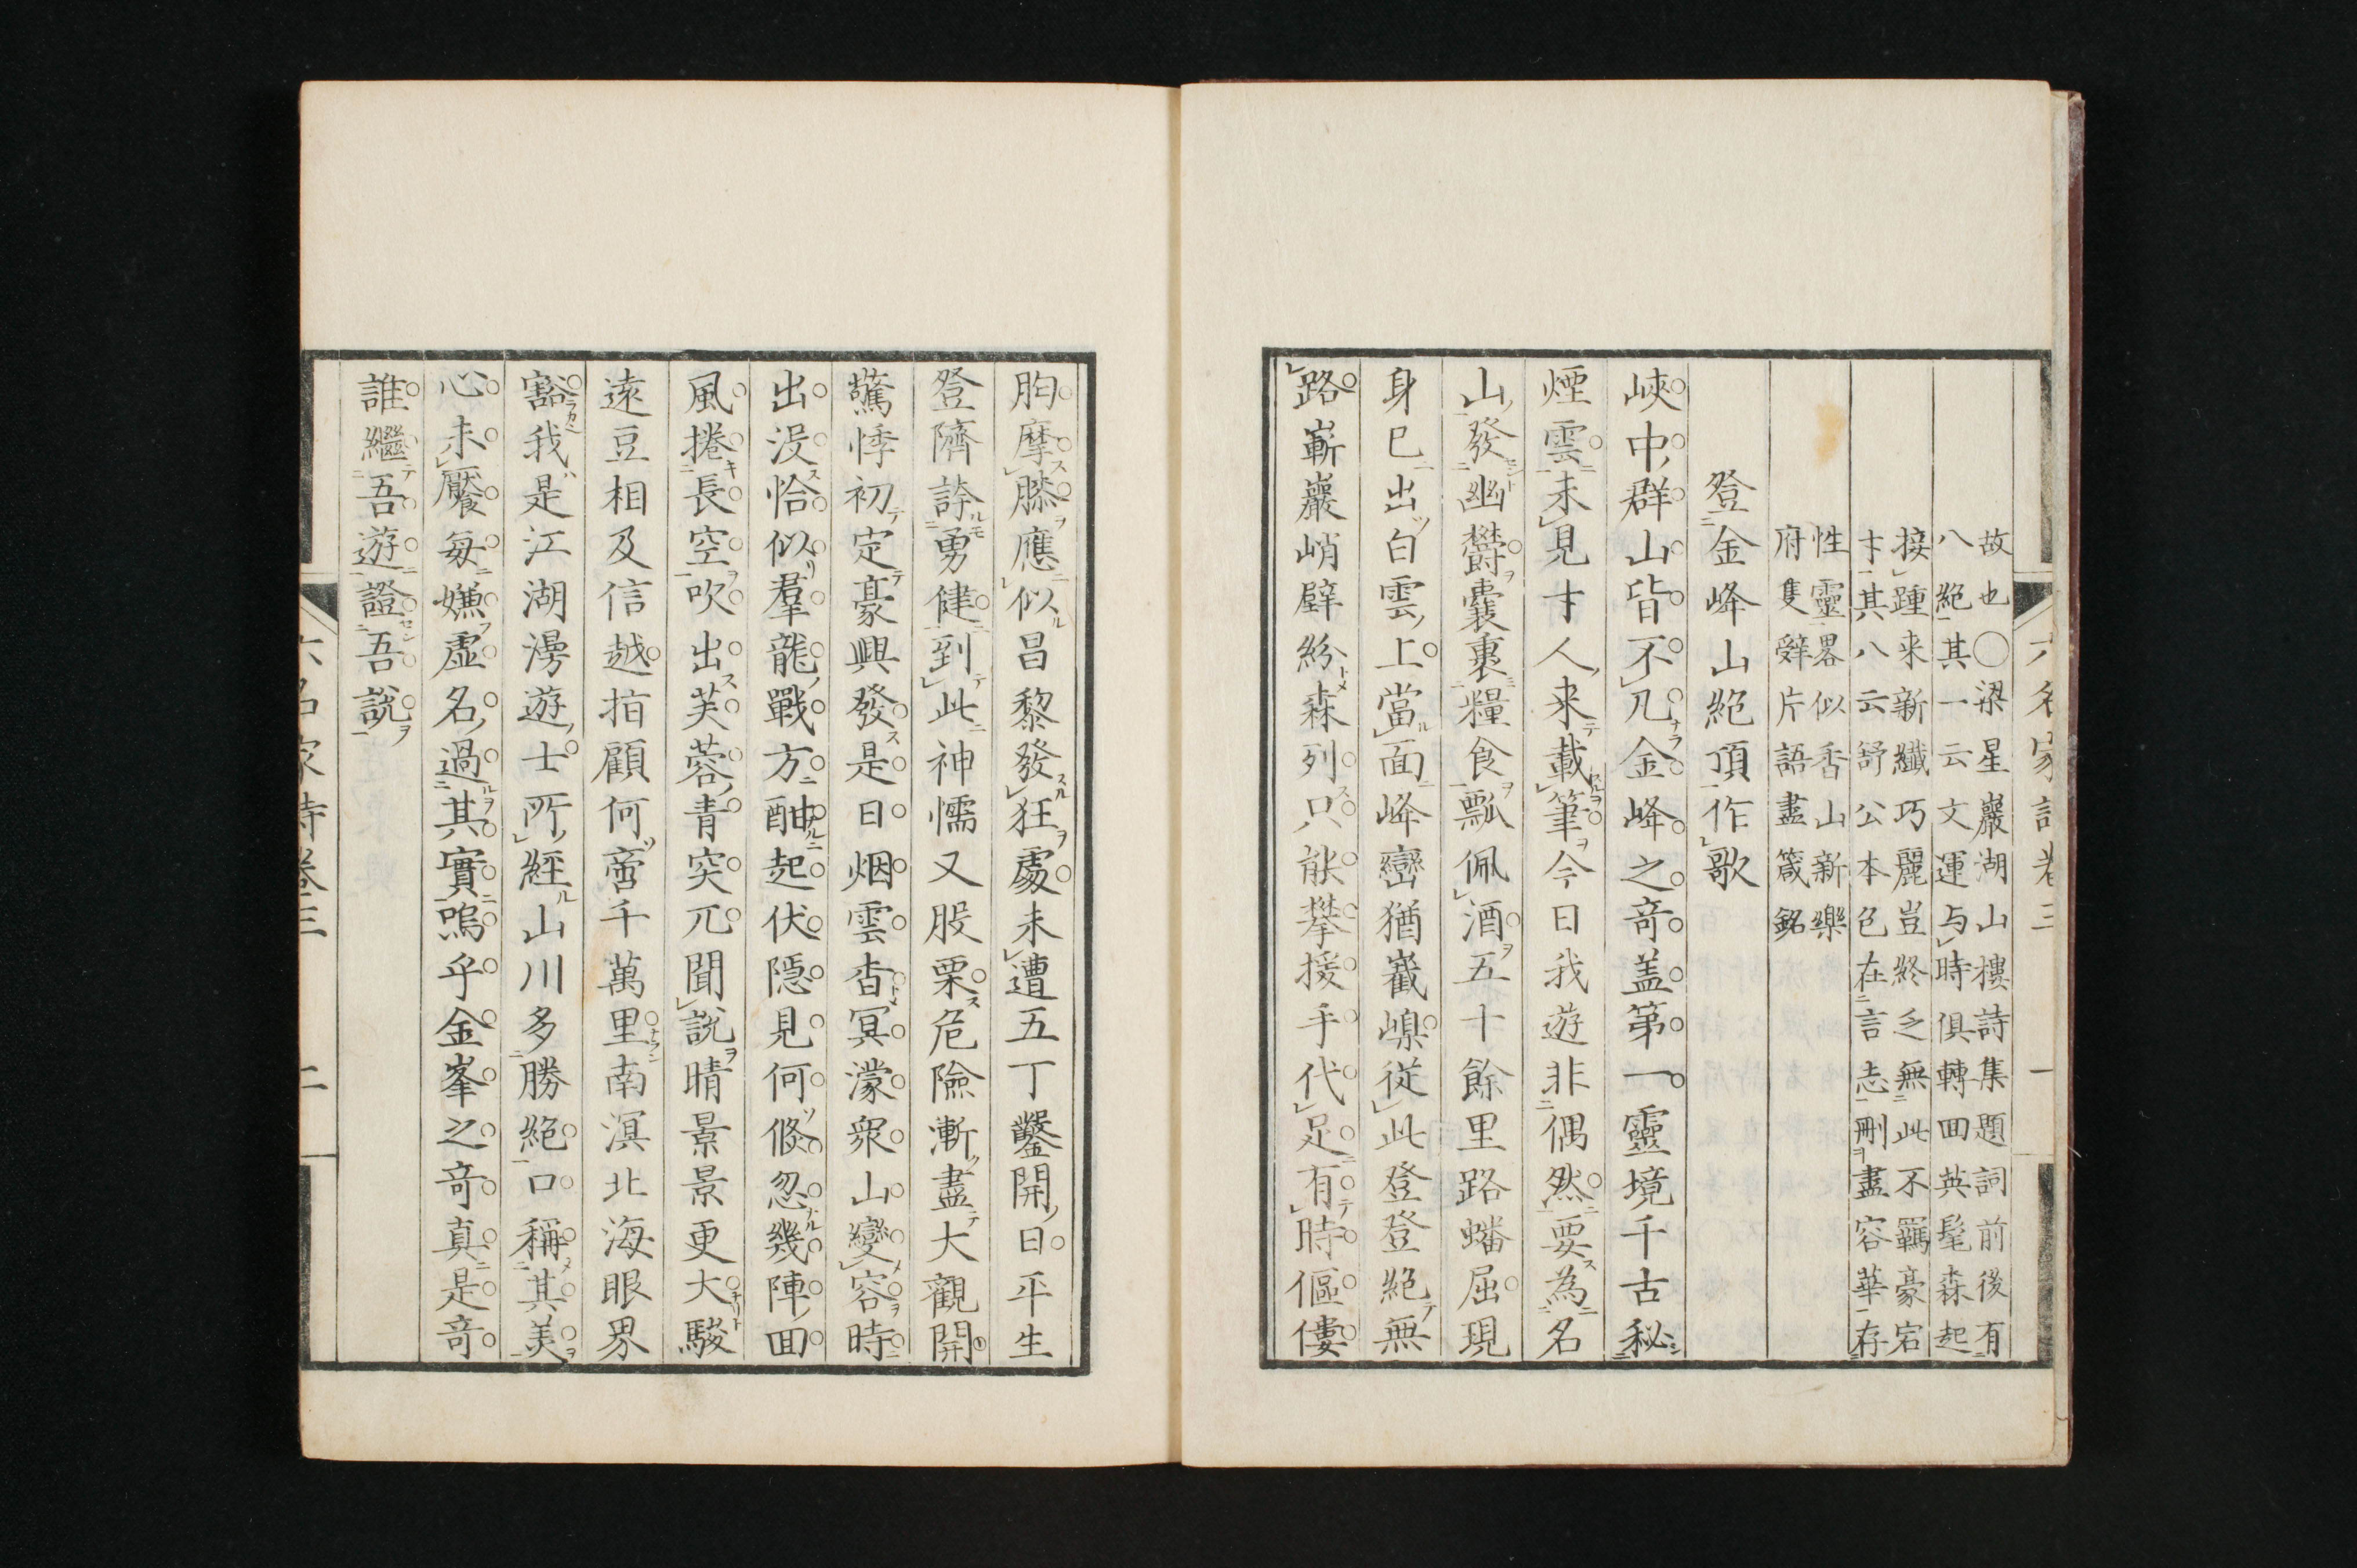 六名家詩卷三 一
故也〇梁星巖湖山樓詩集題詞前後有
八絕其一云文運与時俱轉回英髦森起
接踵来新纖巧麗豈終乏無此不羈豪宕
才其八云舒公本色在言志刪盡容華存
性靈畧似香山新樂
府隻辞片語盡箴銘
登金峰山絕頂作歌
峽中群山皆不凡金峰之奇盖第一靈境千古秘
煙雲未見才人来載筆今日我遊非偶然要為名
山發幽欝囊裹糧食瓢佩酒五十餘里路蟠屈現
身已出白雲上當面峰巒猶巀嵲從此登登絕無
路嶄巖峭壁紛森列只能攀援手代足有時傴僂
胸摩膝應似昌黎發狂處未遭五丁鑿開日平生
登隮誇勇健到此神懦又股栗危險漸盡大觀開
驚悸初定豪興發是日烟雲杳冥濛衆山變容時
出没恰似羣龍戰方酣起伏隱見何倏忽幾陣回
風捲長空吹出芙蓉青突兀聞說晴景景更大駿
遠豆相及信越指顧何啻千萬里南溟北海眼界
豁我是江湖漫遊士所經山川多勝絕口稱其美
心未饜每嫌虛名過其實嗚乎金峯之奇真是奇
誰繼吾遊證吾說
六名家詩卷三 二